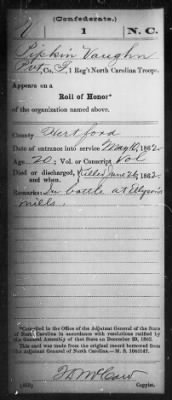 (Confederate.)
V 1 N.C.
Pipkin Vaughn
Pvt, Co. F, 1 Reg't North Carolina Troops.
Appears on a
Roll of Honor*
of the organization named above.
County Hertford
Date of entrance into service May 10, 1862
Age 20; Vol. or Conscript Vol
Died or discharged, and when. Killed June 26, 1862
Remarks: In battle at Ellyson's
mills.
*Compiled in the Office of the Adjutant General of the State
of North Carolina in accordance with resolutions ratified by
the General Assembly of that State on December 20, 1862.
This card was made from the original record borrowed from
the Adjutant General of North Carolina.—M. S.
Copyist.